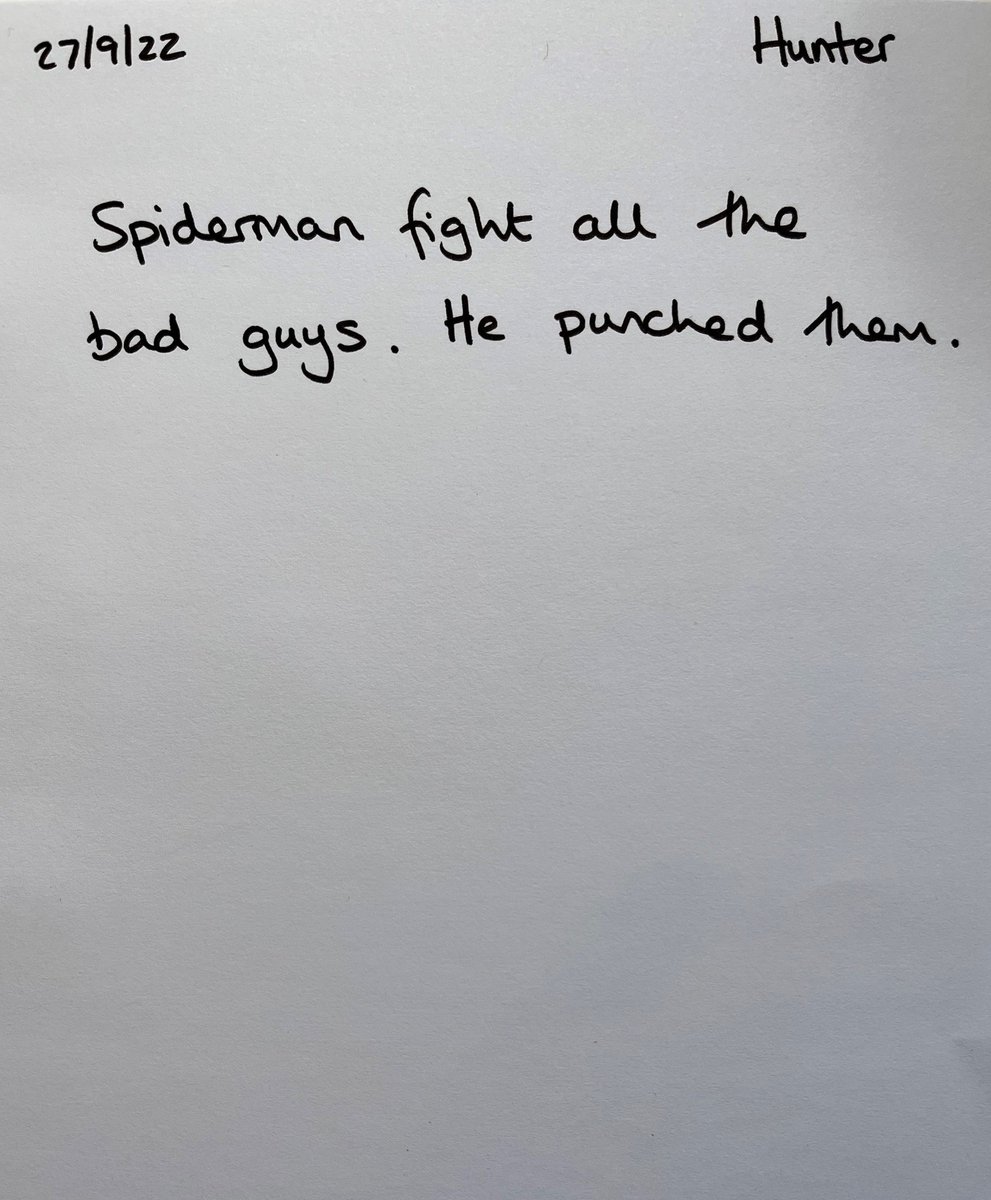 27/9/22 Hunter
Spiderman fight all the
bad guys. He punched them.